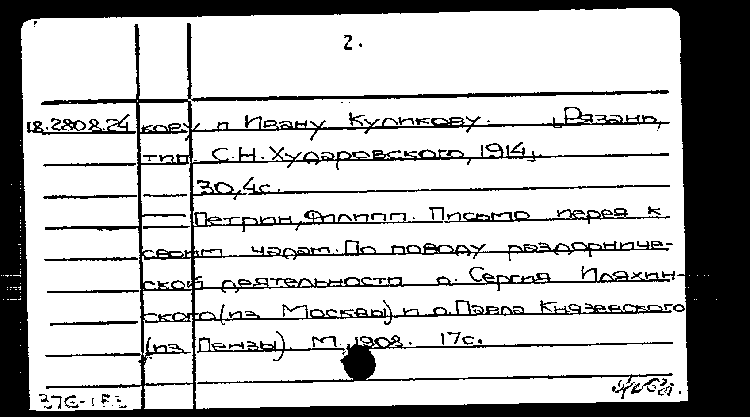 2.
18.2808.24 кову и Ивану Куликову. [Рязань,
тип. С.Н. Хударовского, 1914].
30,4с.
— Петрин, Филипп. Письмо иерея к
своим чадам. По поводу раздорниче-
ской деятельности о. Сергия Иляхин-
ского (из Москвы) и о. Павла Князевского
(из Пензы) М., 1908. 17с.